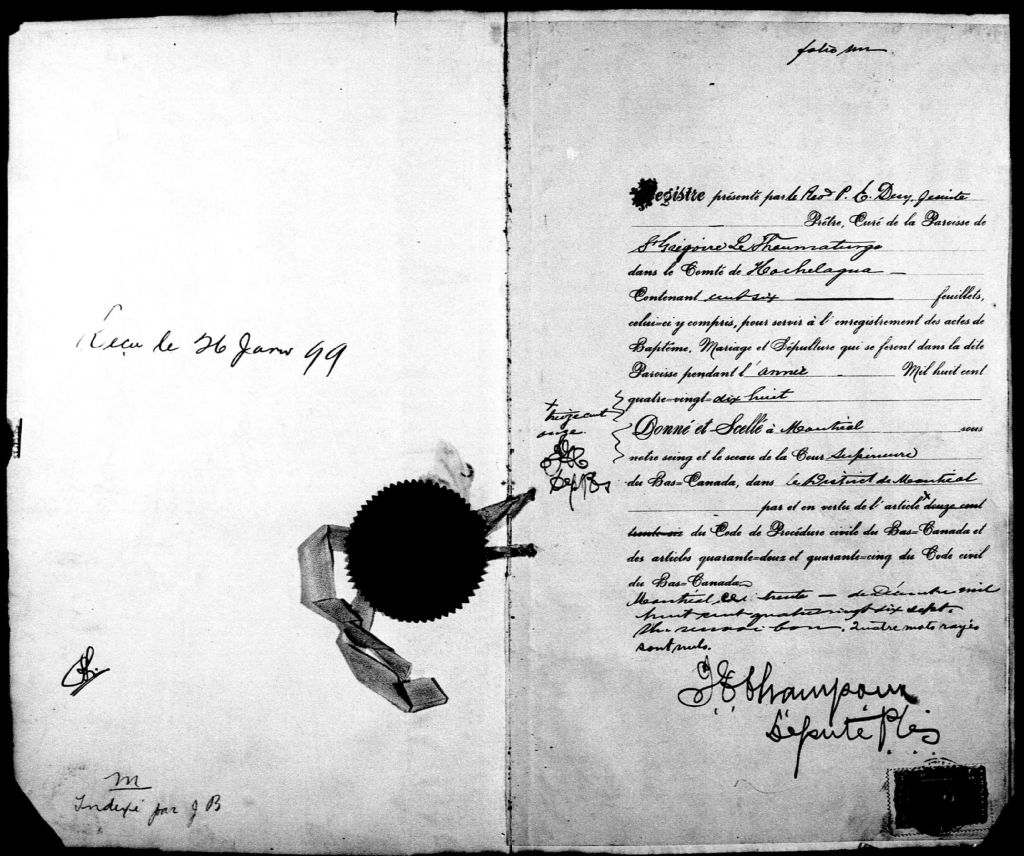 Reçu le 26 Janv 99
m
Indexé par J B
folio un
Registre présenté par le Revd P. E. Desy, Jesuite
Prêtre, Curé de la Paroisse de
St Gregoire Le Thaumaturge
dans le Comté de Hochelaga
Contenant cent six feuillets,
celui-ci y compris, pour servir à l'enregistrement des actes de
Baptême, Mariage et Sépulture qui se feront dans la dite
Paroisse pendant l'année Mil huit cent
quatre-vingt-dix huit
x treize cent
onze.
Dep P.
Donné et Scellé à Montréal sous
notre seing et le sceau de la Cour Supérieure
du Bas-Canada, dans le District de Montréal
par et en vertu de l'article x douze cent
trente-six du Code de Procédure civile du Bas-Canada et
des articles quarante-deux et quarante-cinq du Code civil
du Bas-Canada
Montréal, ce trente de Décembre mil
huit cent quatrevingt dix sept.
Un renvoi bon. Quatre mots rayés
sont nuls.
Député